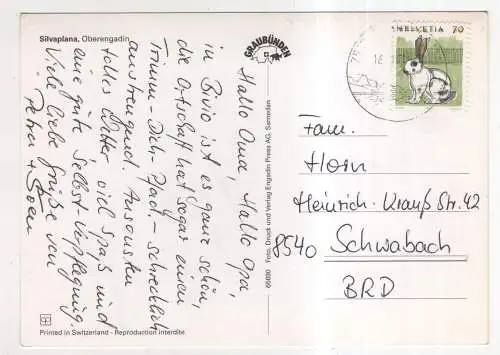 Silvaplana, Oberengadin
GRAUBÜNDEN
Hallo Oma, Hallo Opa,
in Bivio ist es ganz schön,
die Ortschaft hat sogar einen
Trimm-Dich-Pfad - schrecklich
anstrengend. Ansonsten
tolles Wetter viel Spaß und
eine gute Selbst-Verpflegung.
Viele liebe Grüße von
Petra +
Printed in Switzerland - Reproduction interdite
69890 Foto, Druck und Verlag Engadin Press AG, Samedan
HELVETIA 70
Fam.
Horn
Heinrich-Krauß Str. 42
8540 Schwabach
BRD